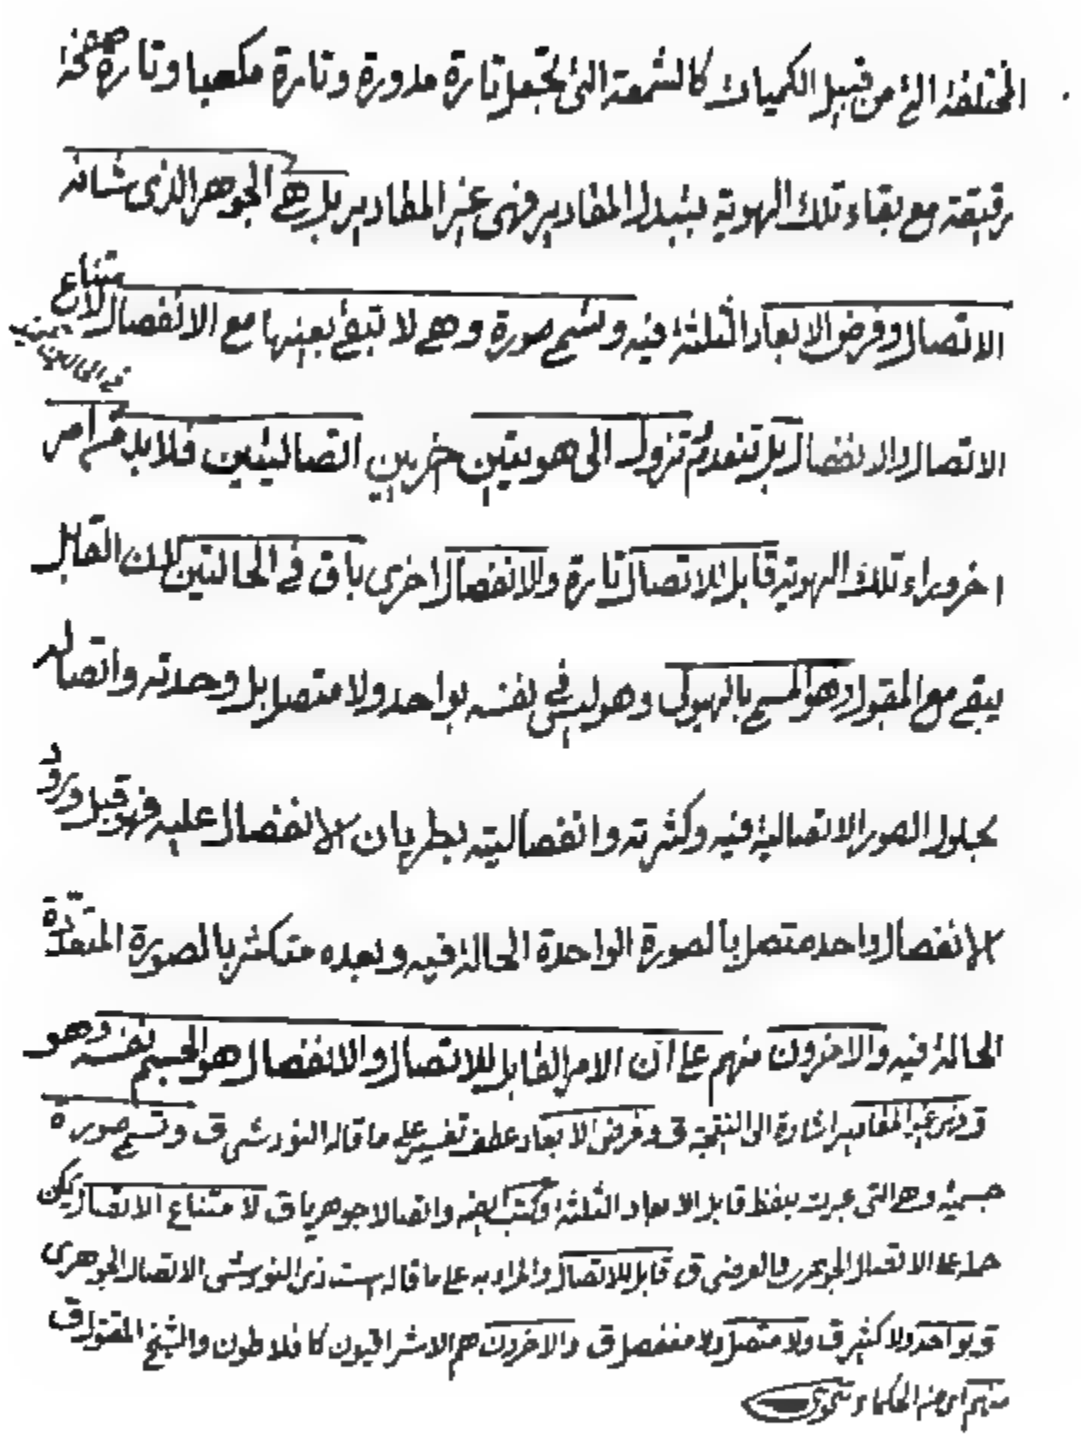 المختلفة التي من قبيل الكميات كالشمعة التي تجعل تارة مدورة وتارة مكعبا وتارة صفحة
رقيقة مع بقاء تلك الهوية بتبدل المقادير فهي غير المقادير بل هي الجوهر الذي شانه
الاتصال وفرض الابعاد الثلثة فيه وتسمى صورة وهي لا تبقى بعينها مع الانفصال لامتناع
في الحالتين
الاتصال والانفصال بل تنعدم تزول الى هويتين اخريين اتصاليتين فلا بد ثم امر
اخر وراء تلك الهوية قابل للاتصال تارة وللانفصال اخرى باق في الحالتين لان القابل
يبقى مع المقبول وهو المسمى بالهيولى وهو ليس في نفسه بواحد ولا متصل بل وحدته واتصاله
بحلول الصور الاتصالية فيه وكثرته وانفصاليته بطريان الانفصال عليه فهو قبل ورود
الانفصال واحد متصل بالصورة الواحدة الحالة فيه وبعده متكثر بالصورة المتعددة
الحالة فيه والاخرون منهم على ان الامر القابل للاتصال والانفصال هو الجسم نفسه وهو
ق غير المقادير اشارة الى النتيجة ق وفرض الابعاد عطف تفسير على ما قاله النودشي ق وتسمى صورة
جسمية وهي التي عبرت بلفظ قابل الابعاد الثلثة واتصالا جوهريا ق لامتناع الاتصال
الانفصال ق قابل للاتصال والمراد به على ما قاله النودشي الاتصال الجوهري
ق بواحد ولا كثير ق ولا متصل ولا منفصل ق والاخرون هم الاشراقيون كافلاطون والشيخ المقتول ق
منهم اى من الحكماء